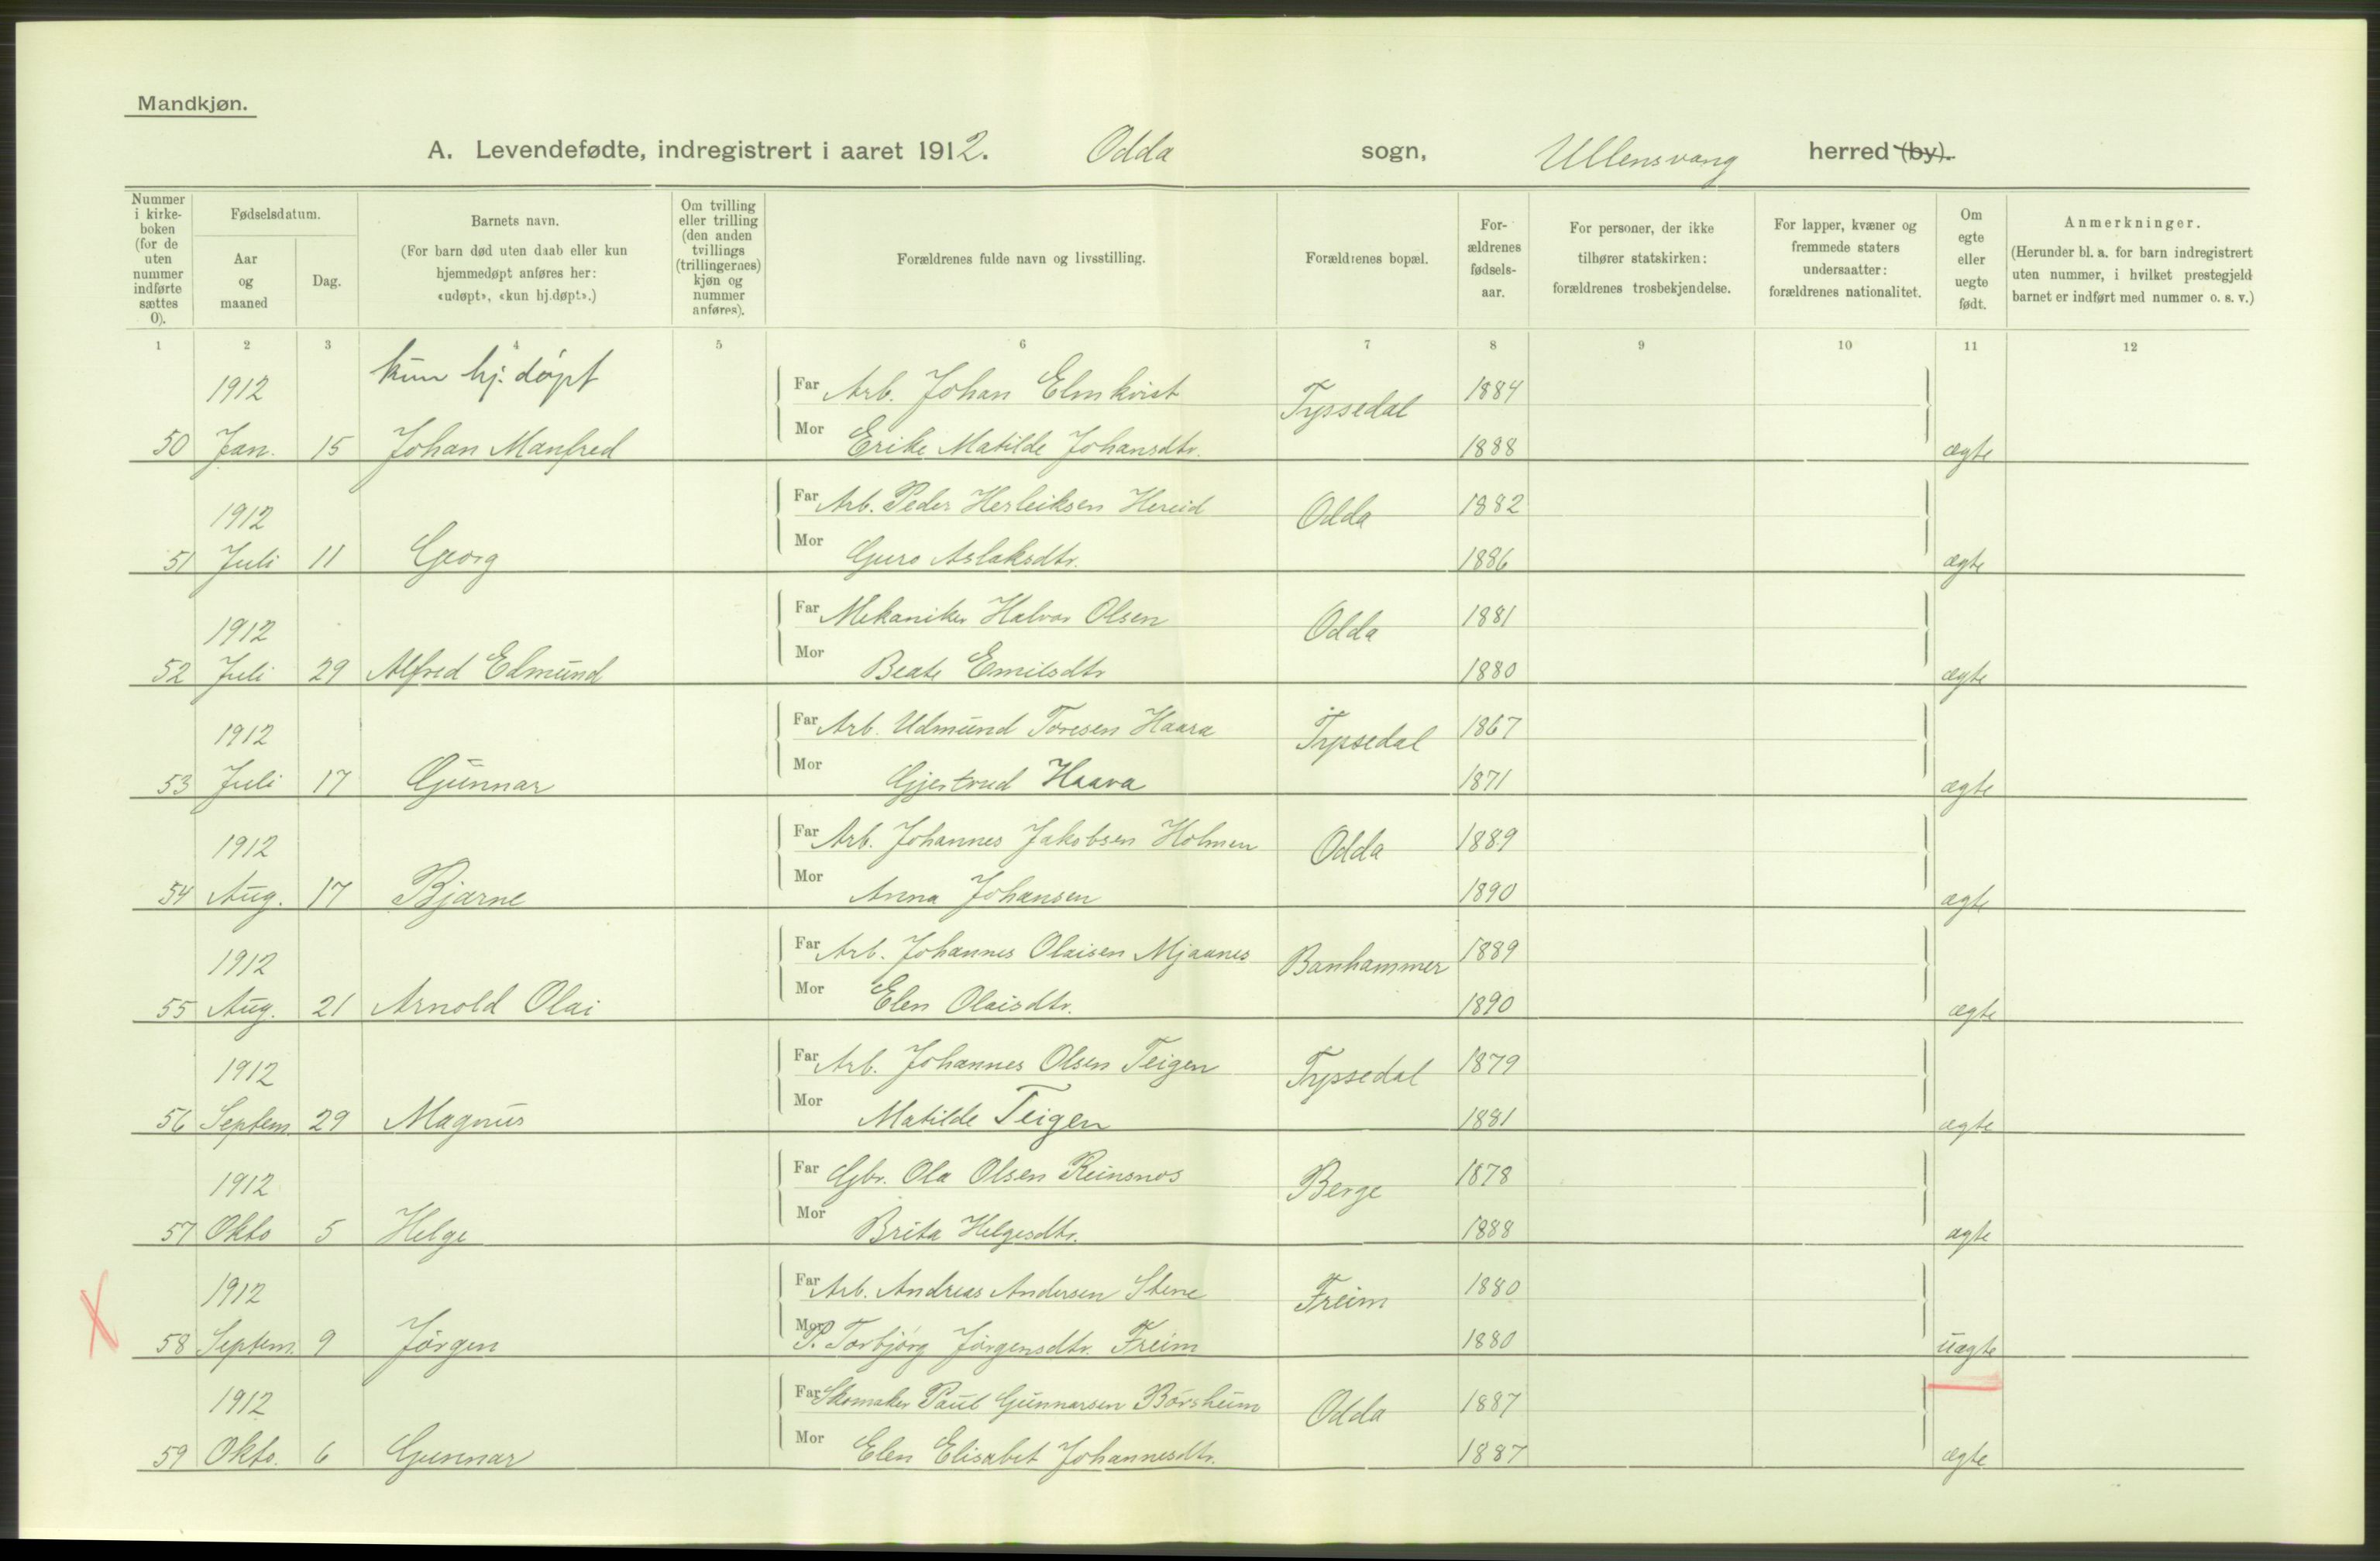 Mandkjøn.
A. Levendefødte, indregistrert i aaret 1912. Odda sogn, Ullensvang herred (by).
Nummer i kirke-boken (for de uten nummer indførte sættes 0).
Fødselsdatum.
Aar og maaned
Dag.
Barnets navn.
(For barn død uten daab eller kun hjemmedøpt anføres her: «udøpt», «kun hj.døpt».)
Om tvilling eller trilling (den anden tvillings (trillingernes) kjøn og nummer anføres).
Forældrenes fulde navn og livsstilling.
Forældrenes bopæl.
For-ældrenes fødsels-aar.
For personer, der ikke tilhører statskirken: forældrenes trosbekjendelse.
For lapper, kvæner og fremmede staters undersaatter: forældrenes nationalitet.
Om egte eller uegte født.
Anmerkninger.
(Herunder bl. a. for barn indregistrert uten nummer, i hvilket prestegjeld barnet er indført med nummer o. s. v.)
1 2 3 4 5 6 7 8 9 10 11 12
1912 kun hj. døpt Far Arb. Johan Elmkvist Tyssedal 1884
50 Jan. 15 Johan Manfred Mor Erike Matilde Johansdtr. 1888 ægte
1912 Far Arb. Peder Herleiksen Hereid Odda 1882
51 Juli 11 Georg Mor Guro Aslaksdtr. 1886 ægte
1912 Far Mekaniker Halvor Olsen Odda 1881
52 Juli 29 Alfred Edmund Mor Beate Emilsdtr 1880 ægte
1912 Far Arb. Udmund Toresen Haara Tyssedal 1867
53 Juli 17 Gunnar Mor Gjertrud Haara 1871 ægte
1912 Far Arb. Johannes Jakobsen Holmen Odda 1889
54 Aug. 17 Bjarne Mor Anna Johansen 1890 ægte
1912 Far Arb. Johannes Olaisen Mjaanes Banhammer 1889
55 Aug. 21 Arnold Olai Mor Elen Olaisdtr. 1890 ægte
1912 Far Arb. Johannes Olsen Teigen Tyssedal 1879
56 Septem. 29 Magnus Mor Matilde Teigen 1881 ægte
1912 Far Gbr. Ola Olsen Reinsnos Berge 1878
57 Okto 5 Helge Mor Brita Helgesdtr. 1888 ægte
1912 Far Arb. Andreas Andersen Stene Freim 1880
X 58 Septem. 9 Jørgen Mor P. Torbjørg Jørgensdtr. Freim 1880 uægte
1912 Far Skomaker Paul Gunnarsen Børsheim Odda 1887
59 Okto. 6 Gunnar Mor Elen Elisabet Johannesdtr. 1887 ægte